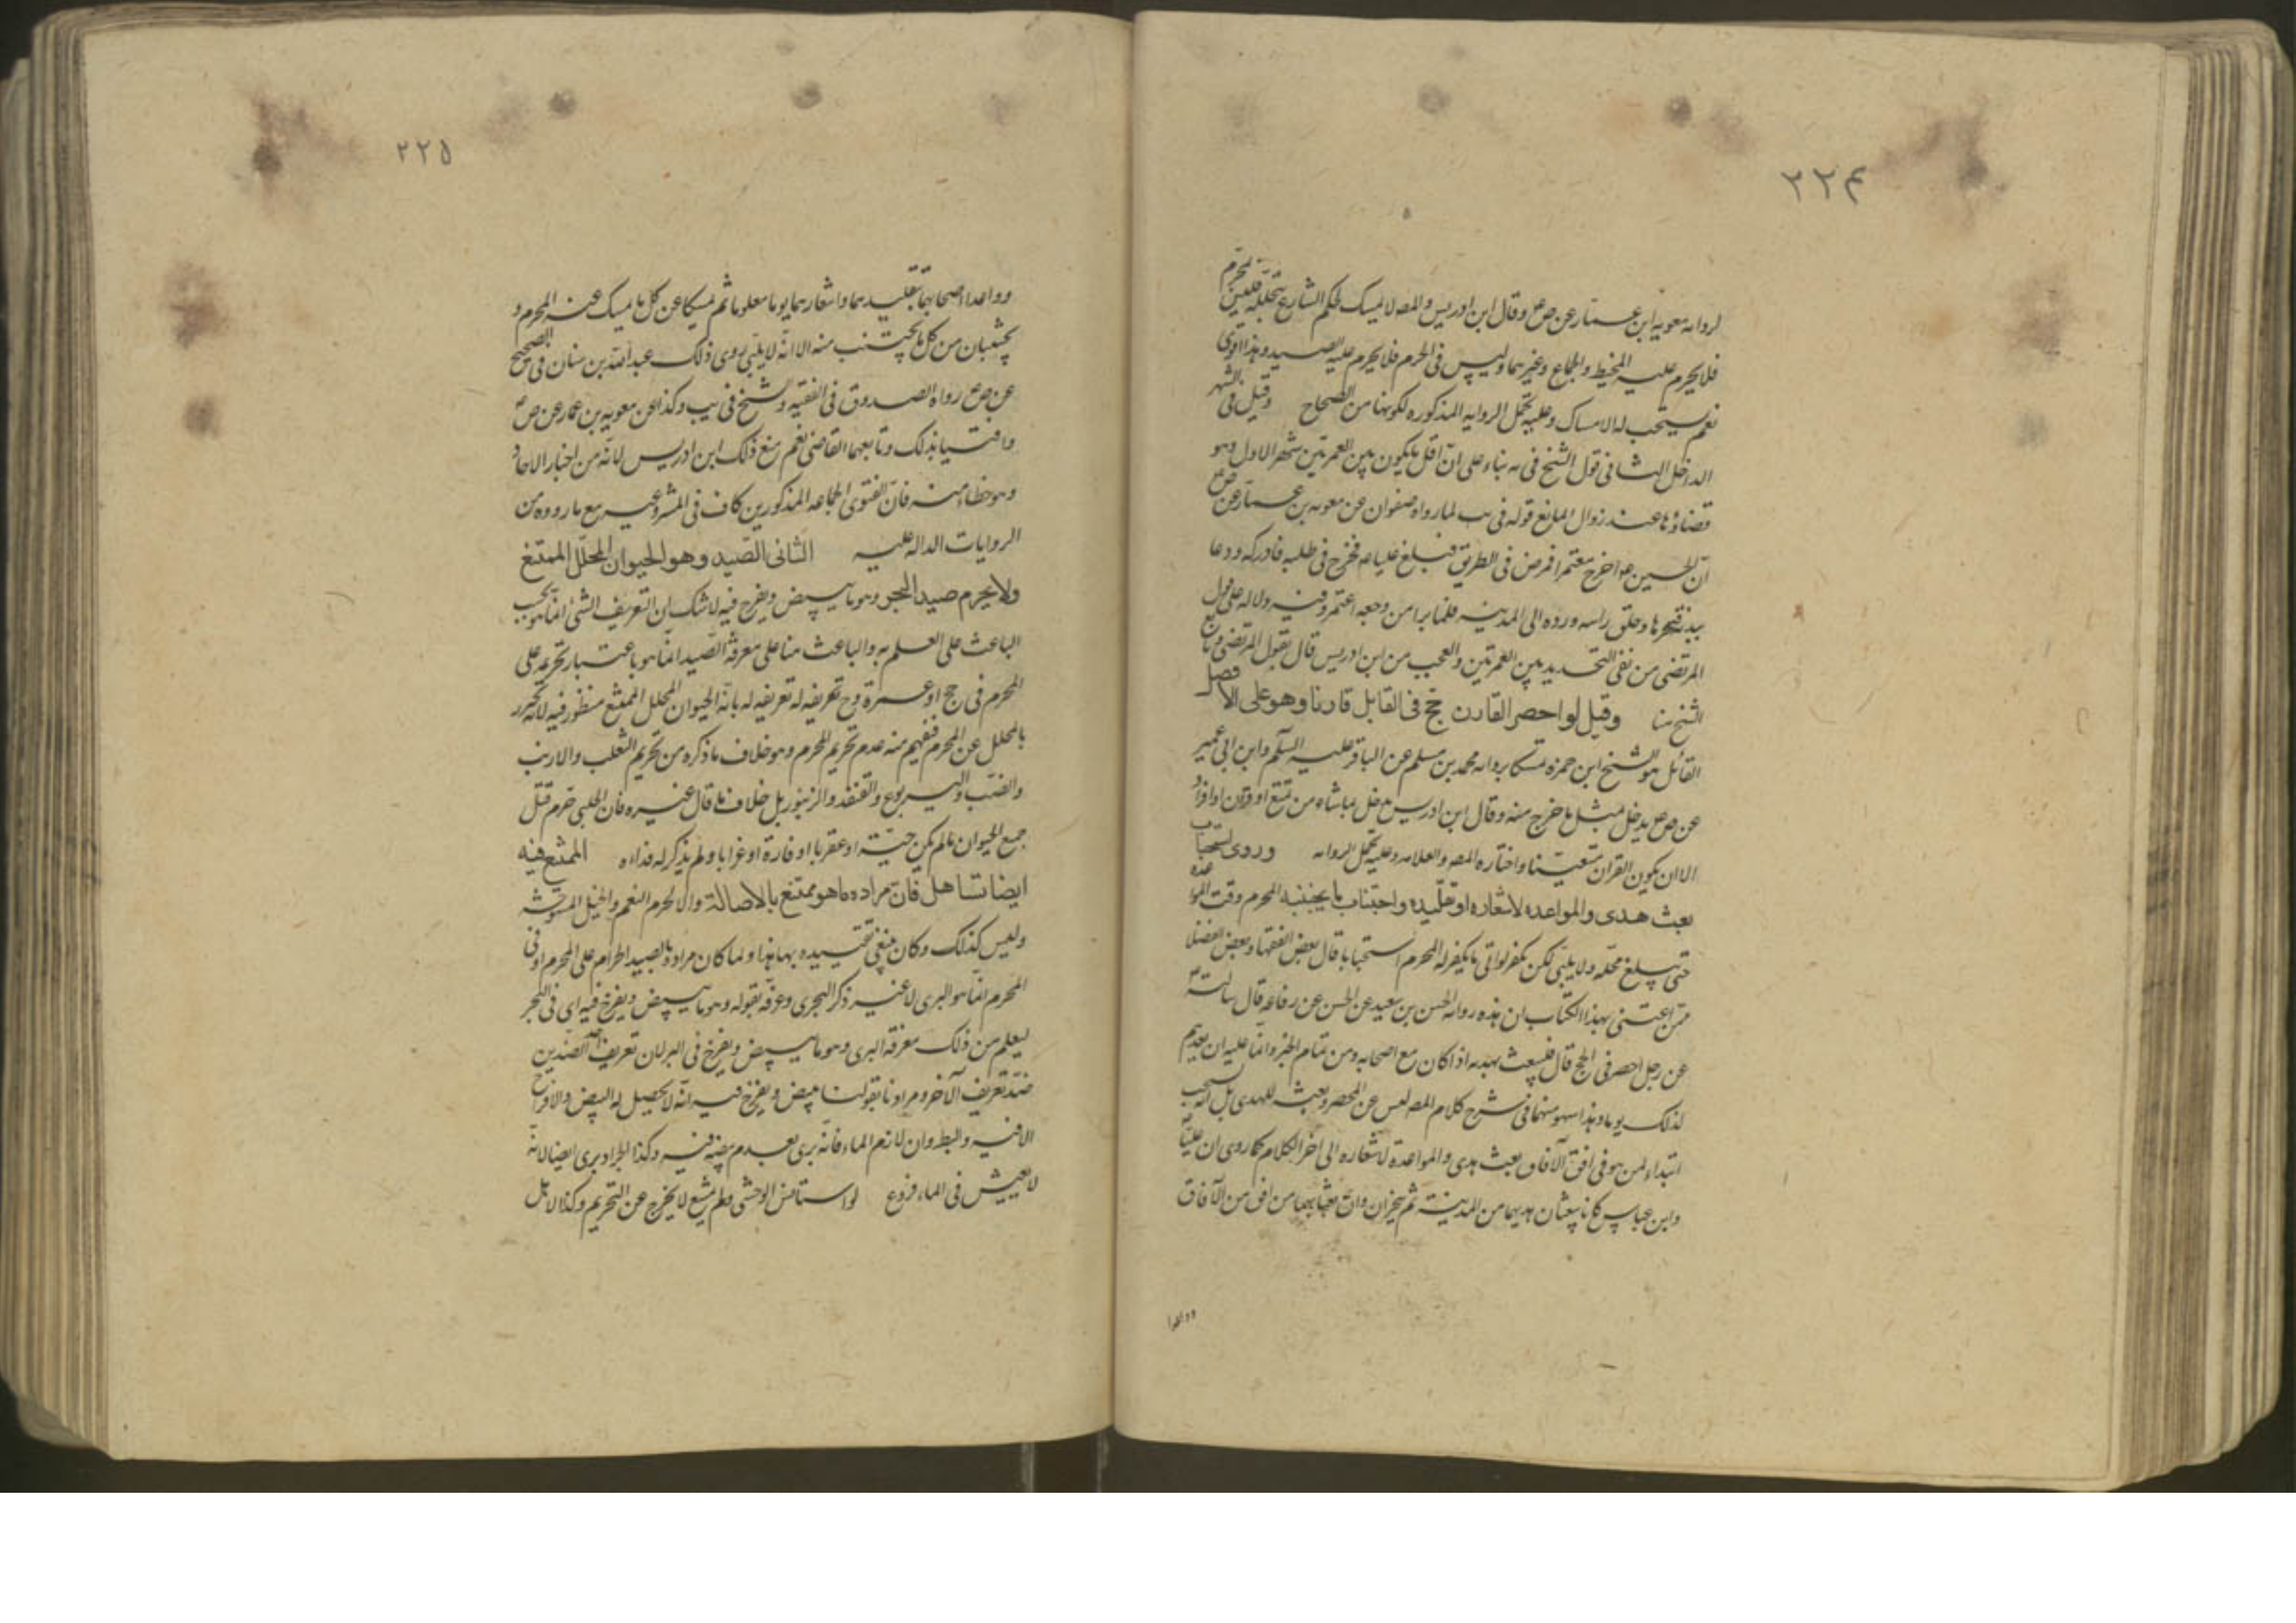 ٢٢۴
لروايه معويه ابن عمار عن ص وقال ابن ادريس والمص لا يمسك لحكم الشارع بتحلله فليس بمحرم
فلا يحرم عليه المخيط والجماع وغيرهما وليس في الحرم فلا يحرم عليه الصيد وهذا اقوى
نعم يستحب له الامساك وعليه تحمل الروايه المذكوره لكونها من الصحاح وقيل في الشهر
الداخل الثاني قول الشيخ في يه بناء على ان اقل ما يكون بين العمرتين شهر الاول وهو
قضاؤها عند زوال المانع قوله في يب لما رواه صفوان عن معويه بن عمار عن ص
ان الحسين خرج معتمرا فمرض في الطريق فبلغ عليا فخرج في طلبه فادركه ودعا
ببدنة فنحرها وحلق راسه ورده الى المدينه فلما برا من وجعه اعتمر وفيه دلاله على قول
المرتضى من نفي التحديد بين العمرتين والعجب من ابن ادريس قال بقول المرتضى وتابع
الشيخ هنا وقيل لو احصر القارن حج في القابل قارنا وهو على الافضل
القائل هو الشيخ ابن حمزه تمسكا بروايه محمد بن مسلم عن الباقر عليه السلم وابن ابي عمير
عن ص يدخل بمثل ما خرج منه وقال ابن ادريس يدخل بما شاء من تمتع او قران او افراد
الا ان يكون القران متعينا واختاره المص والعلامه وعليه تحمل الروايه وروى استحباب
بعث هدى والمواعده لاشعاره او تقليده واجتناب ما يجتنبه المحرم وقت المواعده
حتى يبلغ محله ولا يلبي لكن يكفر لو اتى بما يكفر له المحرم استحبابا قال بعض الفقها وبعض الفضلا
ممن اعتنى بهذا الكتاب ان هذه روايه الحسن بن سعيد عن الحسن عن رفاعه قال سالته
عن رجل احصر في الحج قال فليبعث بهديه اذا كان مع اصحابه ومن تمام الخبر وانما عليه ان يعدهم
لذلك يوما وهذا سهو منهما في شرح كلام المص ليس عن المحصر وبعثه للهدى بل انه يستحب
ابتداء لمن هو في افق الآفاق بعث هدى والمواعدة لاشعاره الى اخر الكلام كما روى ان عليا
وابن عباس كانا يبعثان هديهما من المدينة ثم يتجردان وان بعثا بهما من افق من الآفاق
وواعدا
٢٢٥
وواعدا اصحابهما بتقليدهما واشعارهما يوما معلوما ثم يمسكا عن كل ما يمسك عنه المحرم و
يجتنبان من كل ما يجتنب منه الا انه لا يلبي روى ذلك عبد الله بن سنان في الصحيح
عن ص رواه الصدوق في الفقيه والشيخ في يب وكذا عن معويه بن عمار عن ص
وافتيا بذلك وتابعهما القاضي نعم منع ذلك ابن ادريس لانه من اخبار الاحاد
وهو خطا منه فان الفتوى الجماعه المذكورين كاف في المشروعيه مع ما رووه من
الروايات الداله عليه الثاني الصيد وهو الحيوان المحلل الممتنع
ولا يحرم صيد البحر وهو ما يبيض ويفرخ فيه لا شك ان التعريف الشئ انما هو بحسب
الباعث على العلم به والباعث هنا على معرفة الصيد انما هو باعتبار تحريمه على
المحرم في حج او عمرة وح تعريفه له بانه الحيوان المحلل الممتنع منظور فيه لانه تحرز
بالمحلل عن المحرم فيفهم منه عدم تحريم المحرم وهو خلاف ما ذكره من تحريم الثعلب والارنب
والضب واليربوع والقنفذ والزنبور بل خلاف ما قال غيره فان الحلبي حرم قتل
جميع الحيوان ما لم يكن حية او عقربا او فارة او غرابا ولم يذكر له فداء الممتنع فيه
ايضا تساهل فان مراده ما هو ممتنع بالاصالة والا لحرم النعم والخيل المستوحشة
وليس كذلك وكان ينبغي تقييده بها هذا ولما كان مراده بالصيد الحرام على المحرم او في
الحرم انما هو البرى لا غير ذكر البحرى وعرفه بقوله وهو ما يبيض ويفرخ فيه اى في البحر
ليعلم من ذلك معرفة البرى وهو ما يبيض ويفرخ في البر لان تعريف احد الضدين
ضد تعريف الآخر ومرادنا بقولنا يبيض ويفرخ فيه انه لا يحصل له البيض والافراخ
الا فيه والبط وان لازم الماء فانه برى لعدم بيضه فيه وكذا الجراد برى ايضا لانه
لا يعيش في الماء فروع لو استانس الوحشى ولم يخرج عن التحريم وكذا لا يحل